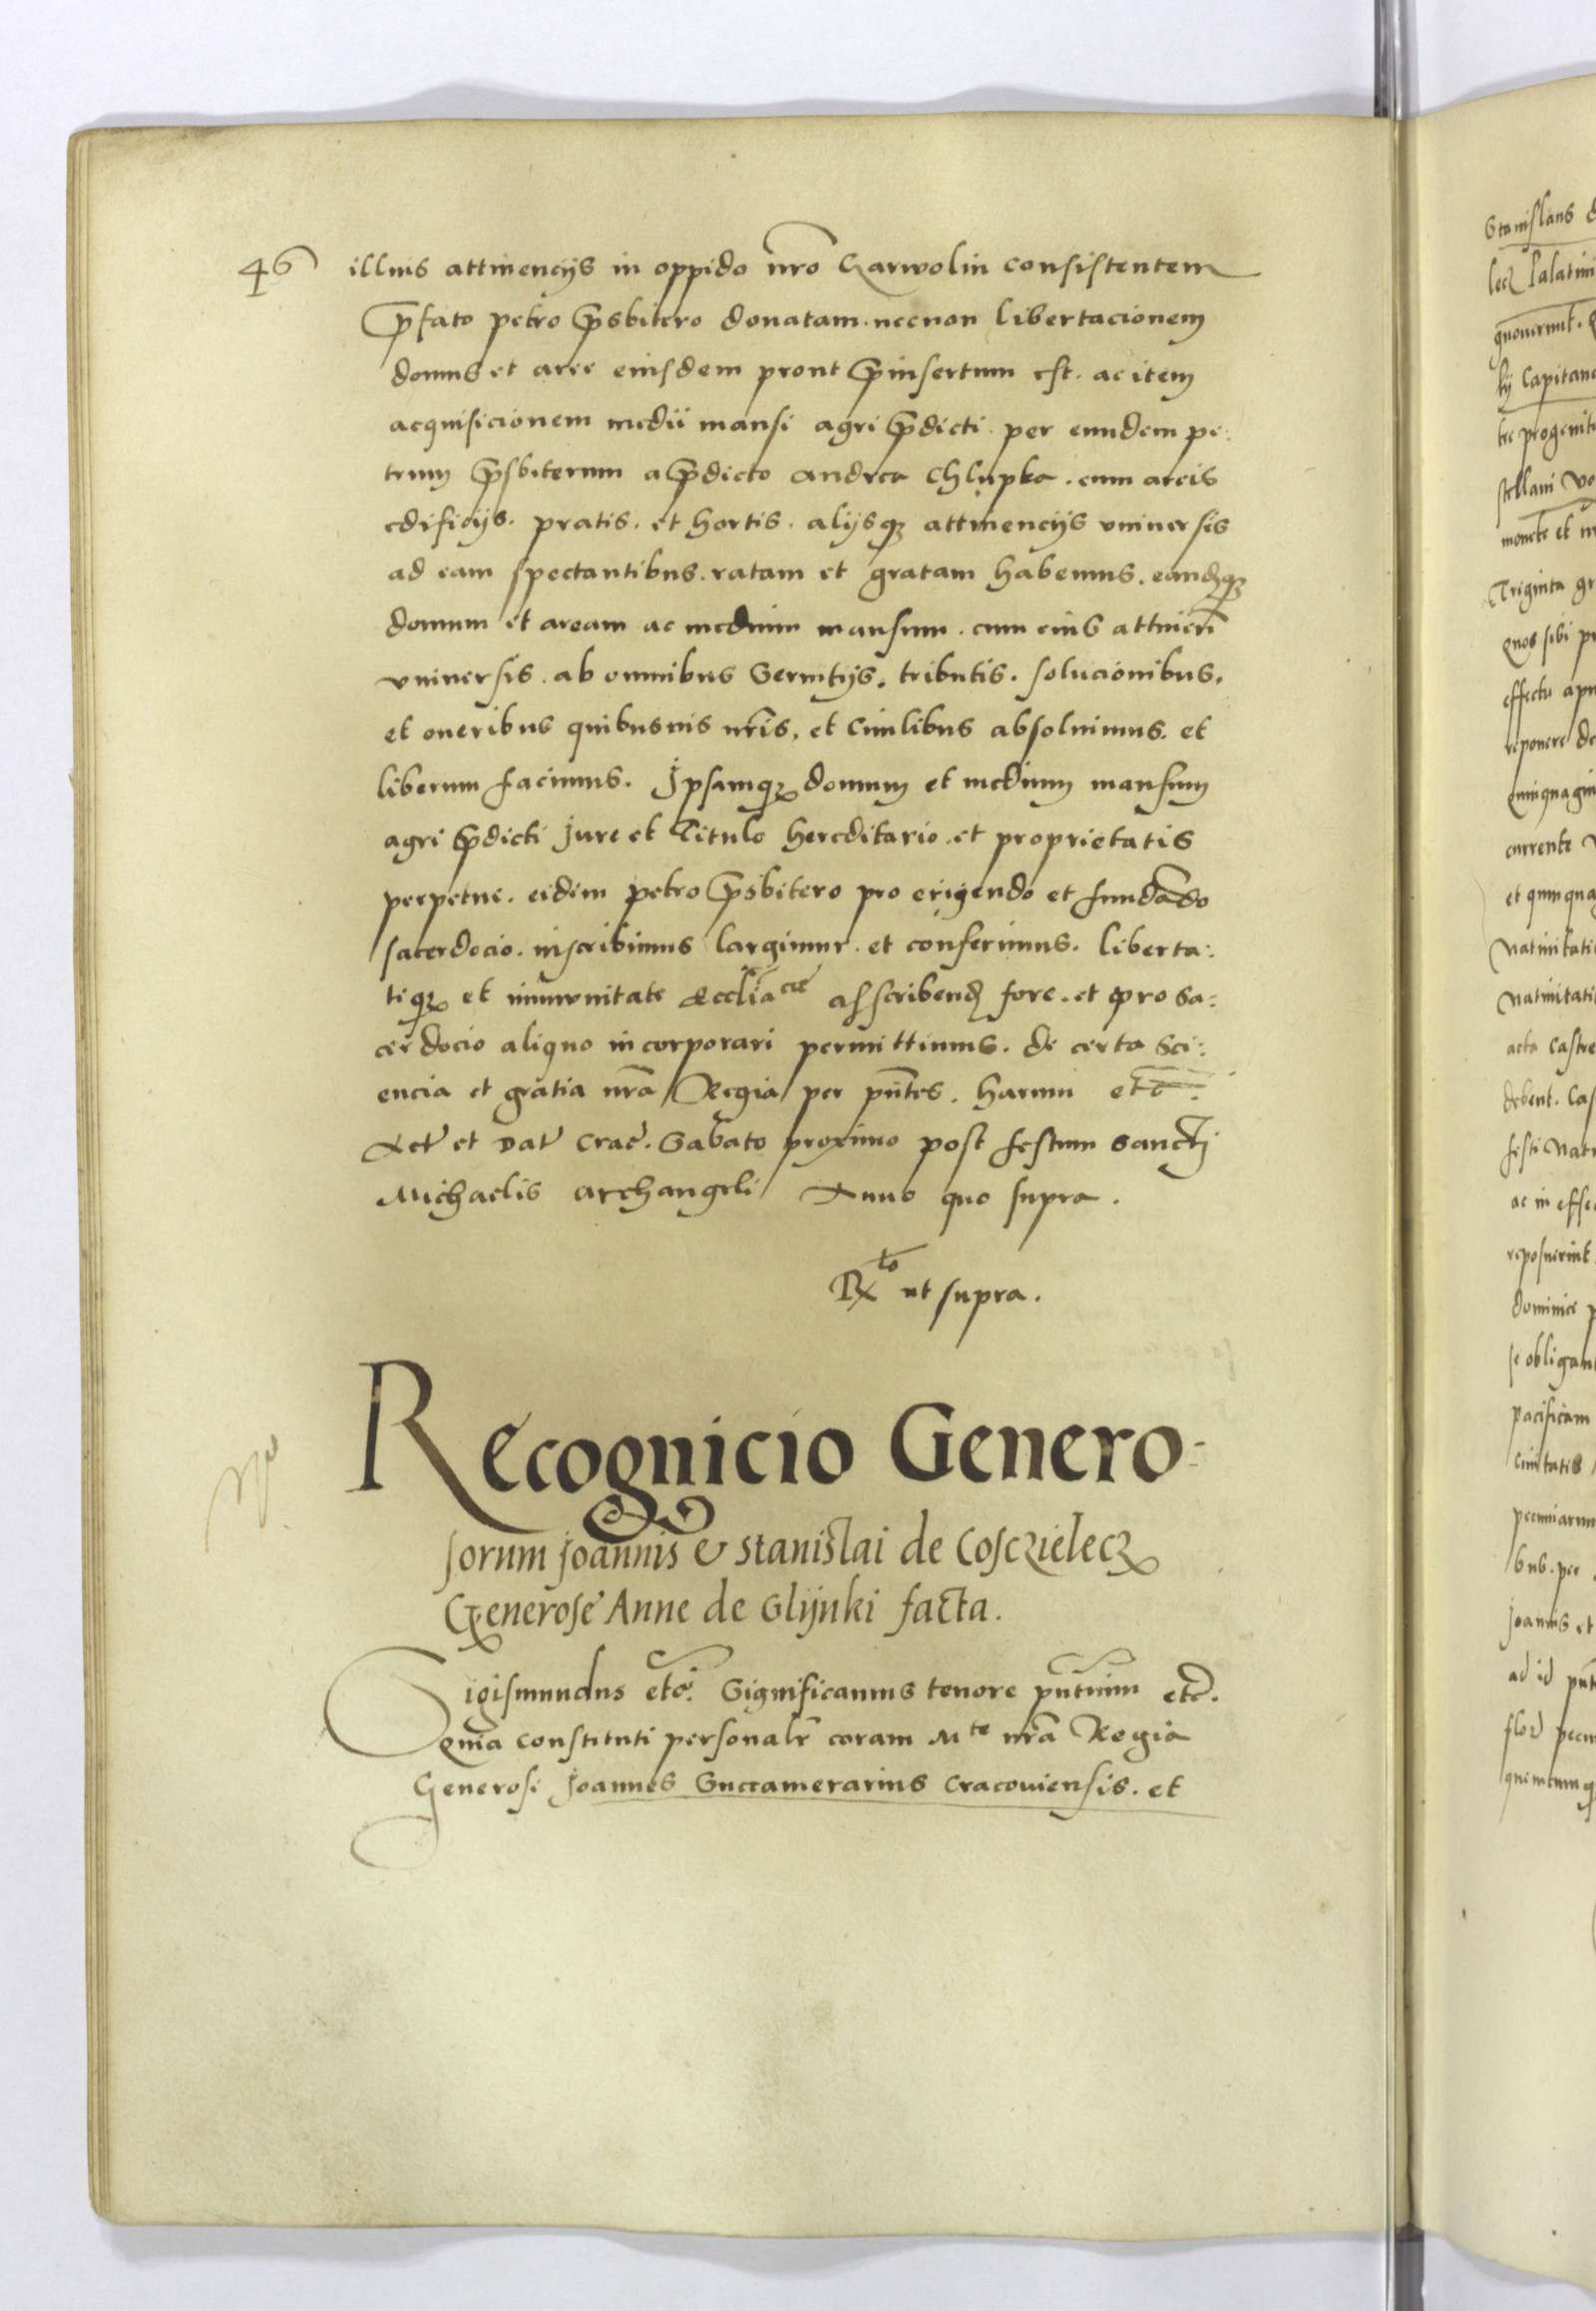 46
illius attinencijs in oppido nrõ Garwolin consistentem
pfato petro psbitero donatam. necnon libertacionem
domus et aree eiusdem prout pinsertum est. ac item
acquisicionem medii mansi agri pdicti per eundem pe:
trum psbiterum a pdicto andrea Chlupka. cum areis
edificijs. pratis. et hortis. alijsq3 attinencijs vniuersis
ad eam spectantibus. ratam et gratam habemus. eandq3
domum et aream ac medium mansum. cum eius attineñ
vniuersis. ab omnibus Seruitijs. tributis. solucionibus.
et oneribus quibusuis nris, et Ciuilibus absoluimus. et
liberum facimus. Jpsamq3 domum et medium mansum
agri pdicti Jure et Titulo hereditario et proprietatis
perpetue. eidem petro psbitero pro erigendo et fundãdo
sacerdocio. inscribimus largimur. et conferimus. liberta:
tiq3 et immunitate Eccliacae asscribend fore. et pro sa:
cerdocio aliquo incorporari permittimus. de certa sci:
encia et gratia nrã Regia per pñtes. harum etc̃.
Act et Dat Crac. Sabato proximo post festum Sanctj
Michaelis archangeli Anno quo supra.
Rto ut supra.
Recognicio Genero:
sorum Joannis & Stanislai de Cosczielecz
Generose Anne de Glijnki facta.
Sigismundus etc. Significamus tenore pñtium etc.
Quia constituti personalr coram Mte nrã Regia
Generosi Joannes Succamerarius Cracouiensis. et
Stanislaus
Palatini
ky Capitane
stellani
Triginta
quos sibi
effectu
reponere
currente
acta Castre
debent.
festi
ac in
reposuerint
dominice
se obligan
pacificam
pecuniarum
Joannis et
ad id